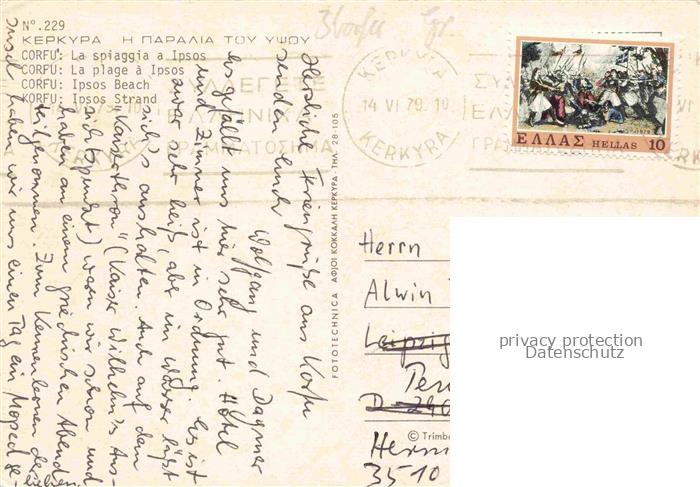 Nº.229
ΚΕΡΚΥΡΑ Η ΠΑΡΑΛΙΑ ΤΟΥ ΥΨΟΥ
CORFU: La spiaggia a Ipsos
CORFU: La plage à Ipsos
CORFU: Ipsos Beach
KORFU: Ipsos Strand
Herzliche Feriengrüße aus Korfu
senden Euch
Wolfgang und Dagmar
Es gefällt uns hier sehr gut. Hotel
und Zimmer ist in Ordnung. Es ist
zwar sehr heiß, aber im Wasser läßt
sich's aushalten. Auch auf dem
"Kaisertron" (Kaiser Wilhelm's Aus-
sichtspunkt) waren wir schon und
haben an einem griechischen Abend
teilgenommen. Zum Kennenlernen der
Insel haben wir uns einen Tag ein Moped ge-
liehen.
FOTOTECHNICA ΑΦΙΟΙ ΚΟΚΚΑΛΗ ΚΕΡΚΥΡΑ - ΤΗΛ. 28-105
ΚΕΡΚΥΡΑ
14 VI 79. 10
KERKYRA
ΣΥΛΛΕΓΕΤΕ
ΕΛΛΗΝΙΚΑ
ΓΡΑΜΜΑΤΟΣΗΜΑ
ΕΛΛΑΣ HELLAS 10
Herrn
Alwin
Leipzig
D-
3510
privacy protection
Datenschutz